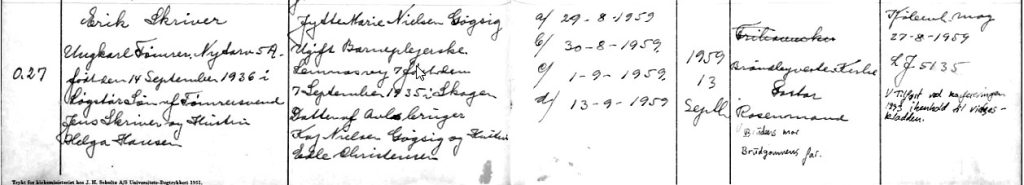 0.27
Erik Skriver
Ungkarl Tømrer, Nytorv 5A.
født den 14 September 1936 i
Løgstør Søn af Tømrersvend
Jens Skriver og Hustru
Helga Hansen
Jytte Marie Nielsen Gøgsig
Ugift Barneplejerske
7 født den
7 September 1935 i Skagen
Datter af Avlsbruger
Kaj Nielsen Gøgsig og Hustru
Edle Christensen
a/ 29-8-1959
b/ 30-8-1959
c/ 1-9-1959
d/ 13-9-1959
1959
13
Septb
Brønderslev Kirke
Pastor
Rosenmand
Brudens mor
Brudgommens far.
27-8-1959
LJ. 5135
1) Tilføjet ved
1993 i henhold til vielses-
bladden.
Trykt for kirkeministeriet hos J. H. Schultz A/S Universitets-Bogtrykkeri 1952.